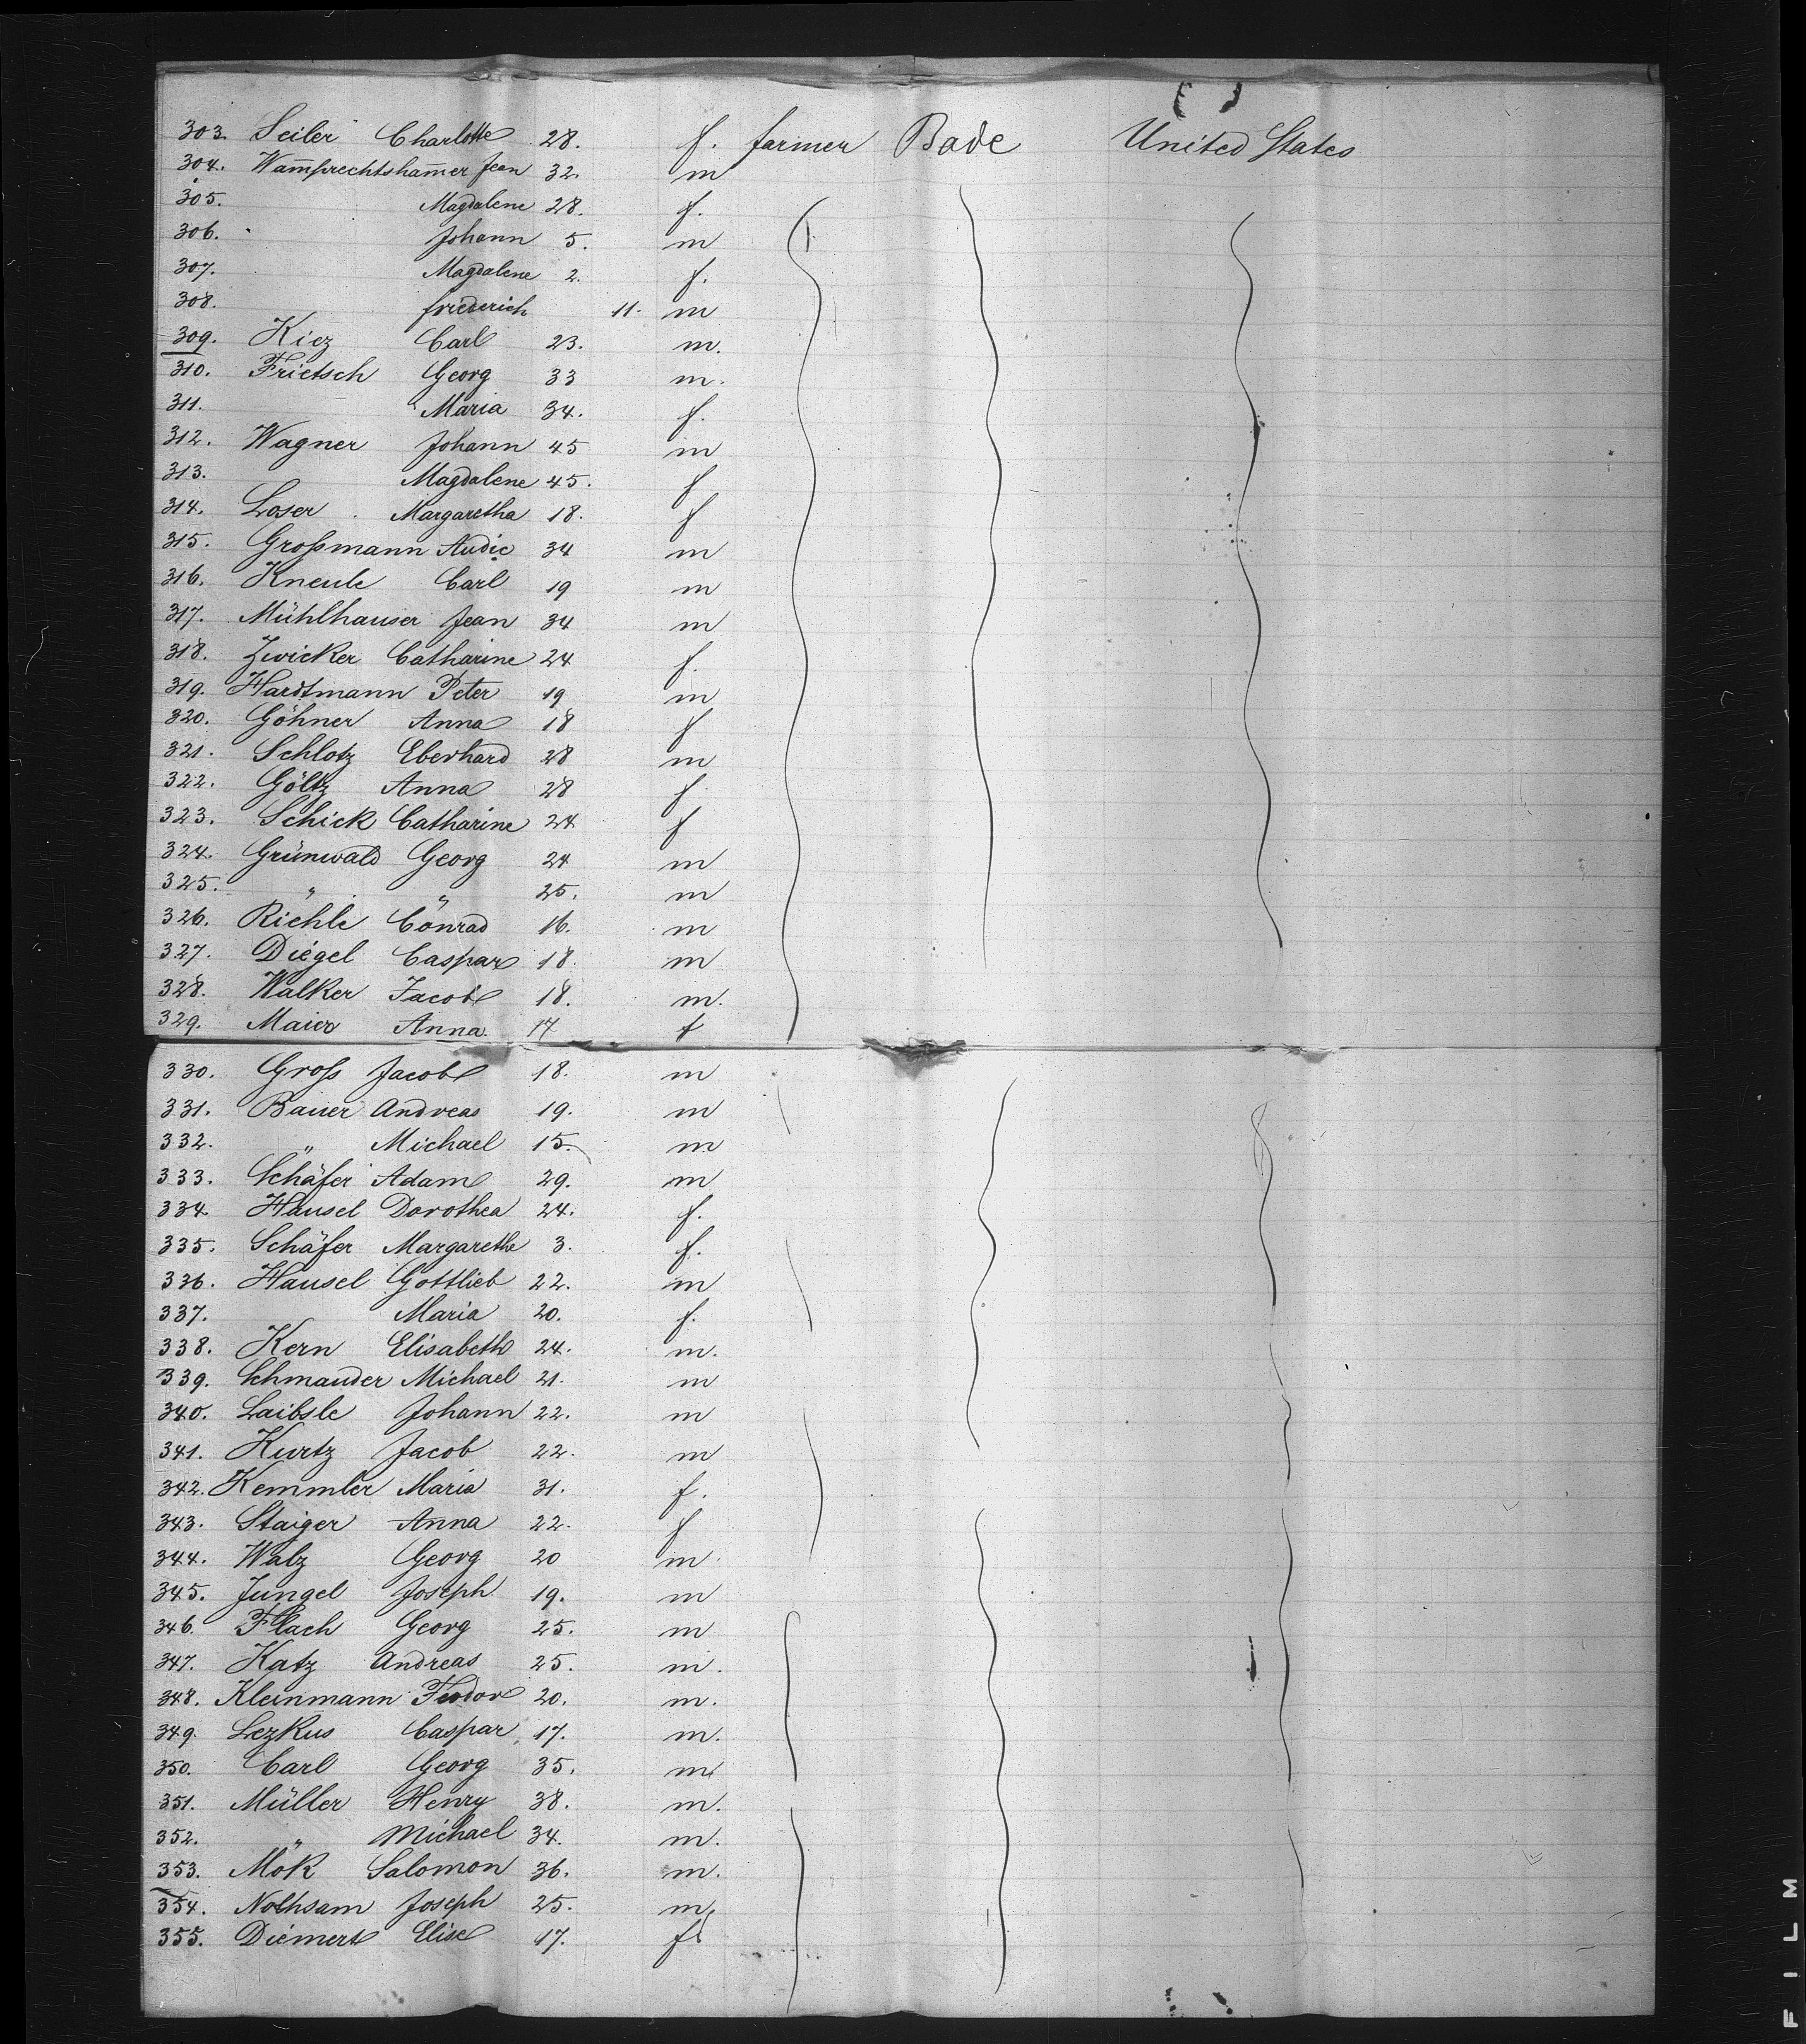 303. Seiler Charlotte 28. f. farmer Bade United States
304. Wam̅prechtsham̅er Jean 32. m
305. Magdalene 28. f.
306. Johann 5. m
307. Magdalene 2. f.
308. friederich 11. m
309. Kiez Carl 23. m.
310. Frietsch Georg 33 m.
311. Maria 34. f.
312. Wagner Johann 45 m
313. Magdalene 45. f
314. Loser Margaretha 18. f
315. Großmann 34 m
316. Kneule Carl 19 m
317. Mühlhauser Jean 34 m
318. Zwicker Catharine 24 f.
319. Hardtmann Peter 19 m
320. Göhner Anna 18 f
321. Schlotz Eberhard 28 m
322. Göltz Anna 28 f.
323. Schick Catharine 24 f
324. Grünwald Georg 24 m
325. " " 25. m
326. Riehle Conrad 16. m
327. Diegel Caspar 18. m
328. Walker Jacob 18. m.
329. Maier Anna. 17 f
330. Groß Jacob 18. m
331. Bauer Andreas 19. m
332. " Michael 15. m
333. Schäfer Adam 29. m
334. Hausel Dorothea 24. f.
335. Schäfer Margarethe 3. f.
336. Hausel Gottlieb 22. m
337. Maria 20. f.
338. Kern Elisabeth 24. m.
339. Schmauder Michael 21. m
340. Laibsle Johann 22. m
341. Kurtz Jacob 22. m
342. Kemmler Maria 31. f.
343. Staiger Anna 22. f
344. Walz Georg 20 m.
345. Jungel Joseph 19. m
346. Flach Georg 25. m
347. Katz Andreas 25. m.
348. Kleinmann Feodor 20. m.
349. Lezkus Caspar 17. m.
350. Carl Georg 35. m
351. Müller Henry 38. m.
352. " Michael 34. m.
353. Mök Salomon 36. m.
354. Nothsam Joseph 25. m.
355. Diemert Elise 17. f
FILM